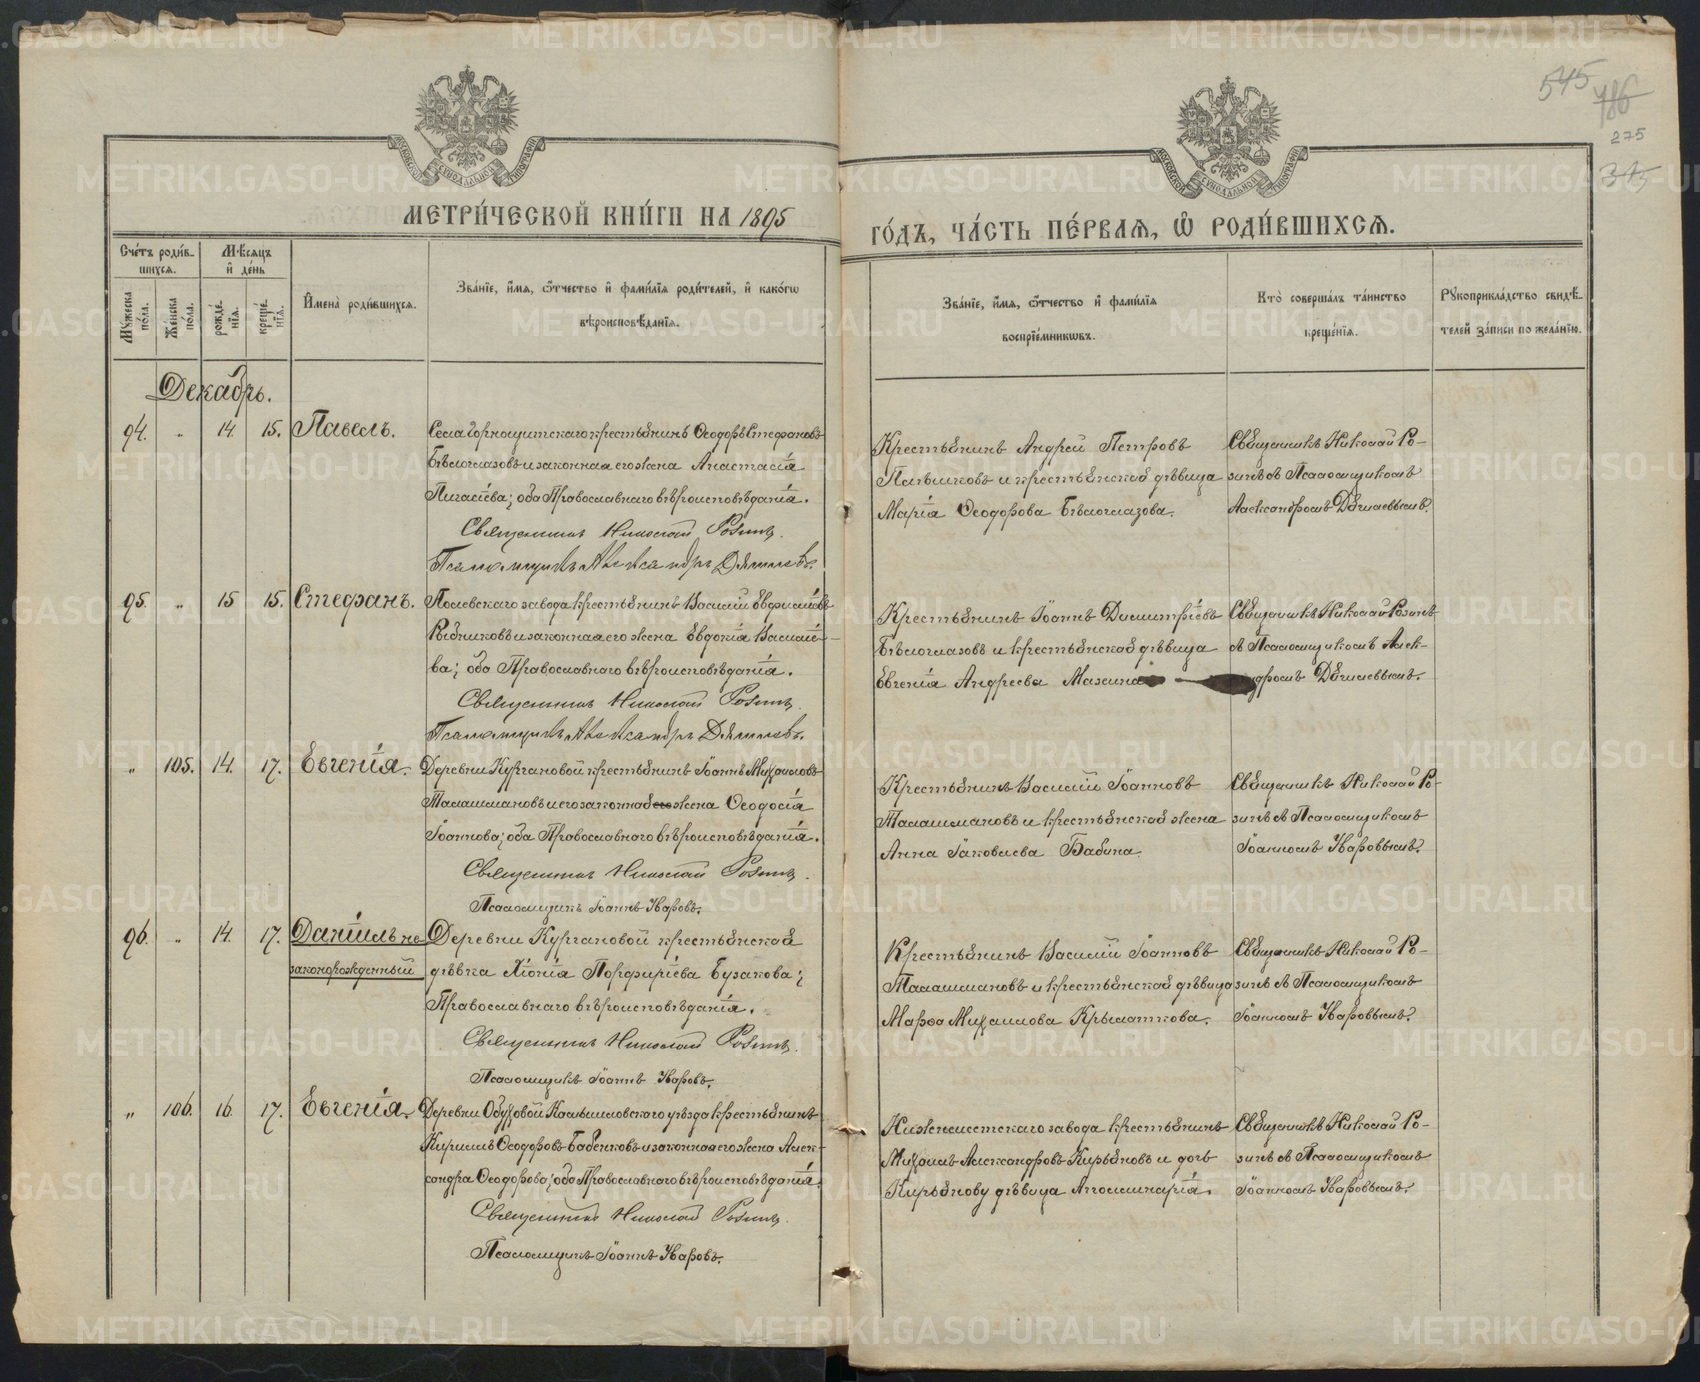 545
486
275
345
МОСКОВСКОЙ СѴНОДАЛЬНОЙ ТИПОГРАФІИ
МОСКОВСКОЙ СѴНОДАЛЬНОЙ ТИПОГРАФІИ
МЕТРИ́ЧЕСКОЙ КНИ́ГИ НА 1895
ГО́ДЪ, ЧА́СТЬ ПЕ́РВАѦ, Ѡ РОДИ́ВШИХСѦ.
Сче́тъ роди́в-
шихсѧ.
Мѣ́сѧцъ
и҆ де́нь
Мꙋ́жеска по́ла.
Же́нска по́ла.
рожде́нїѧ.
креще́нїѧ.
И҆мена̀ роди́вшихсѧ.
Зва́нїе, и҆́мѧ, ѻ҆́тчество и҆ фами́лїѧ роди́телей, и҆ како́гѡ
вѣроисповѣ́данїѧ.
Зва́нїе, и҆́мѧ, ѻ҆́тчество и҆ фами́лїѧ
воспрїе́мникѡвъ.
Кто̀ соверша́лъ та́инство
креще́нїѧ.
Рꙋкоприкла́дство свидѣ́-
телей за́писи по жела́нїю.
Декабрь.
94. „ 14. 15. Павелъ.
Села Горнощитскаго крестьянинъ Ѳеодоръ Стефановъ
Бѣлоглазовъ и законная его жена Анастасія
Пигасіева; оба Православнаго вѣроисповѣданія.
Священникъ Николай Розинъ.
Псаломщикъ Александръ Дягилевъ.
Крестьянинъ Андрей Петровъ
Паньшковъ и крестьянская дѣвица
Марія Ѳеодорова Бѣлоглазова.
Священникъ Николай Ро-
зинъ съ Псаломщикомъ
Александромъ Дягилевымъ.
95. „ 15 15. Стефанъ.
Полевскаго завода крестьянинъ Василій Евфиміевъ
Рыбниковъ и законная его жена Евдокія Василіе-
ва; оба Православнаго вѣроисповѣданія.
Священникъ Николай Розинъ.
Псаломщикъ Александръ Дягилевъ.
Крестьянинъ Іоаннъ Димитріевъ
Бѣлоглазовъ и крестьянская дѣвица
Евгенія Андреева Мажина
Священникъ Николай Розинъ
съ Псаломщикомъ Алек-
ндромъ Дягилевымъ.
„ 105. 14. 17. Евгенія.
Деревни Кургановой крестьянинъ Іоаннъ Михаиловъ
Талашмановъ и его законная его жена Ѳеодосія
Іоаннова; оба Православнаго вѣроисповѣданія.
Священникъ Николай Розинъ.
Псаломщикъ Іоаннъ Уваровъ.
Крестьянинъ Василій Іоанновъ
Талашмановъ и крестьянская жена
Анна Іаковлева Бабина.
Священникъ Николай Ро-
зинъ съ Псаломщикомъ
Іоанномъ Уваровымъ.
96. „ 14. 17. Даніилъ не-
законорожденный
Деревни Кургановой крестьянская
дѣвка Хіонія Порфиріева Бузакова;
Православнаго вѣроисповѣданія.
Священникъ Николай Розинъ.
Псаломщикъ Іоаннъ Уваровъ.
Крестьянинъ Василій Іоанновъ
Талашмановъ и крестьянская дѣвица
Марѳа Михаилова Крылаткова.
Священникъ Николай Ро-
зинъ съ Псаломщикомъ
Іоанномъ Уваровымъ.
„ 106. 16. 17. Евгенія.
Деревни Обуховой Камышловскаго уѣзда крестьянинъ
Кириллъ Ѳеодоровъ Бабенковъ и законная его жена Алек-
сандра Ѳеодорова; оба Православнаго вѣроисповѣданія.
Священникъ Николай Розинъ.
Псаломщикъ Іоаннъ Уваровъ.
Нижнеисетскаго завода крестьянинъ
Михаилъ Александровъ Кирьяновъ и дочь
Кирьянову дѣвица Аполлинарія.
Священникъ Николай Ро-
зинъ съ Псаломщикомъ
Іоанномъ Уваровымъ.
METRIKI.GASO-URAL.RU